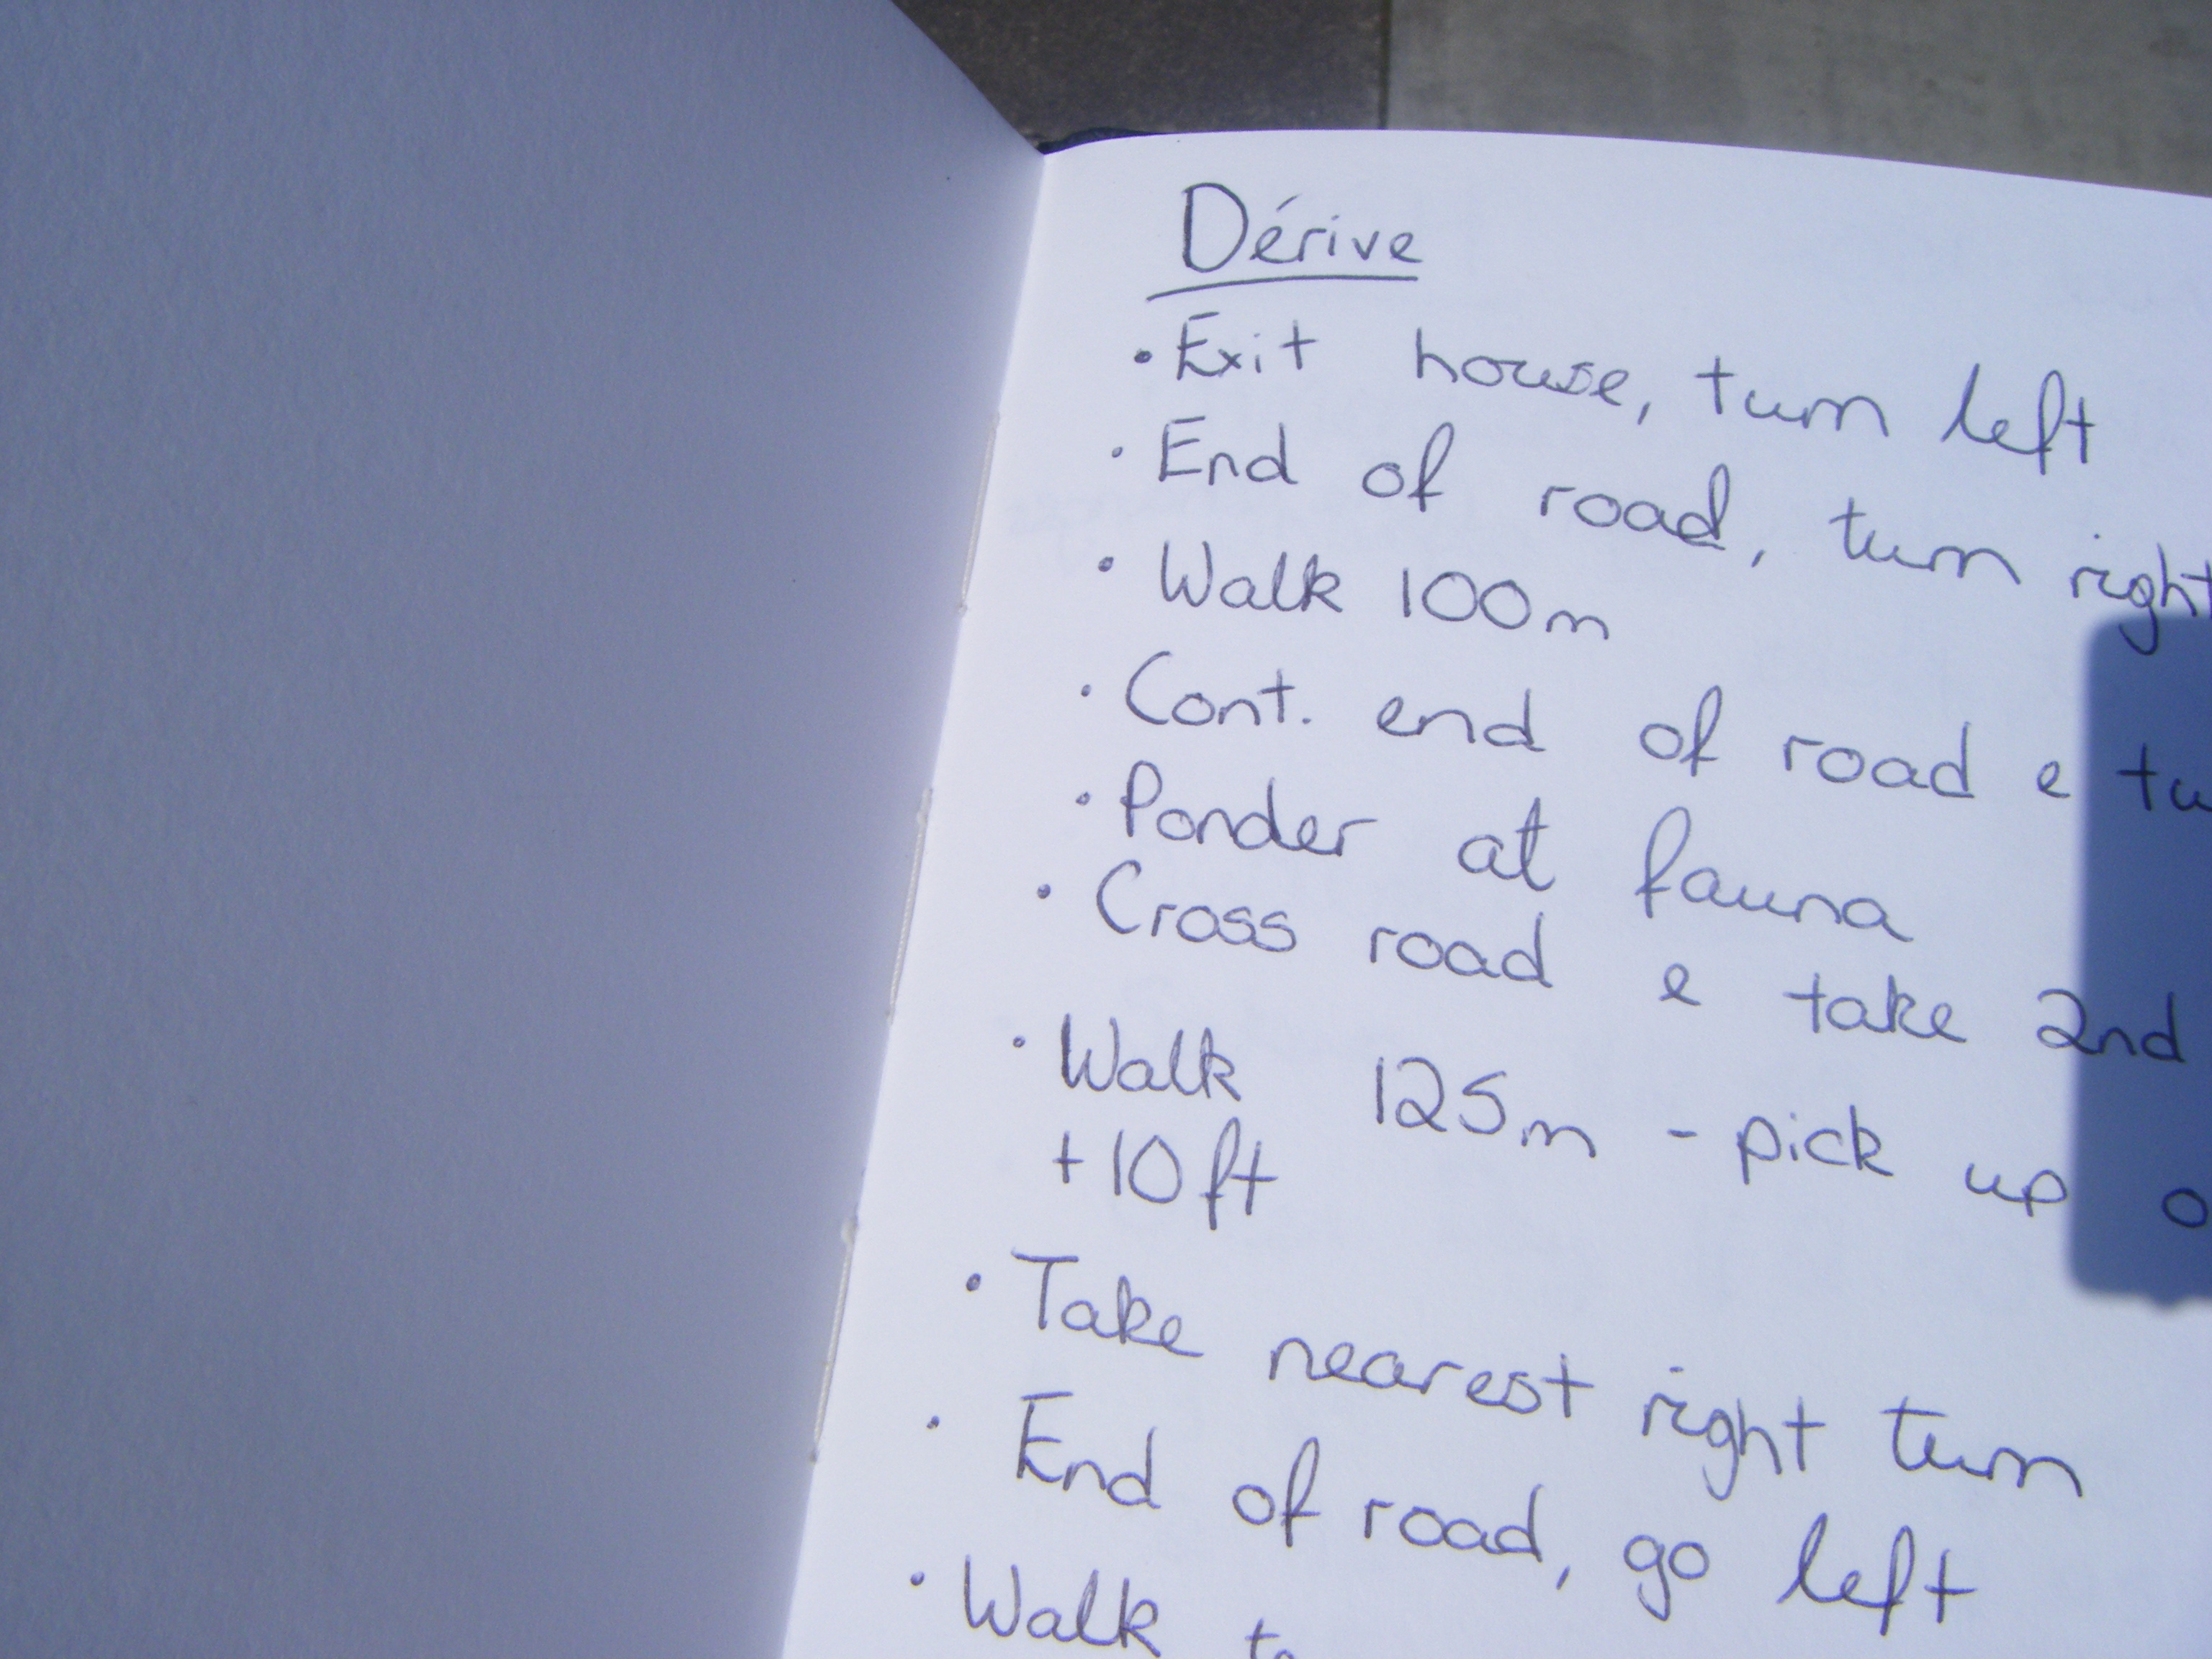 Dérive
• Exit house, turn left
• End of road, turn right
• Walk 100m
• Cont. end of road e
• Ponder at fauna
• Cross road e take 2nd
• Walk 125m - pick up
+10ft
• Take nearest right turn
• End of road, go left
• Walk